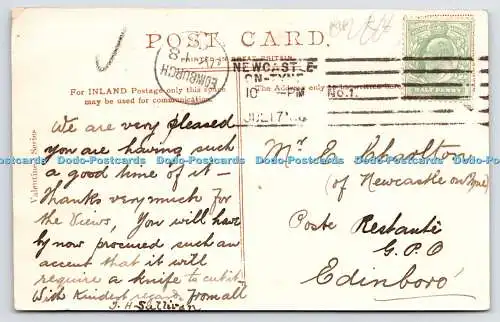 POST CARD.
PRINTED IN GREAT BRITAIN
EDINBURGH
NEWCASTLE
ON-TYNE
10 PM
JUL 17
No.1.
HALF PENNY
For INLAND Postage only this space
may be used for communication.
The Address only
Valentine's Series
We are very pleased
you are having such
a good time of it —
Thanks very much for
the views, You will have
by now procured such an
accent that it will
require a knife to cut it.
With kindest regards from all
J. H. Sullivan
Mr. E.
(of Newcastle on Tyne)
Poste Restante
G.P.O
Edinboro'
Dodo-Postcards Dodo-Postcards Dodo-Postcards Dodo-Postcards Dodo-Postcards Dodo-Postcards